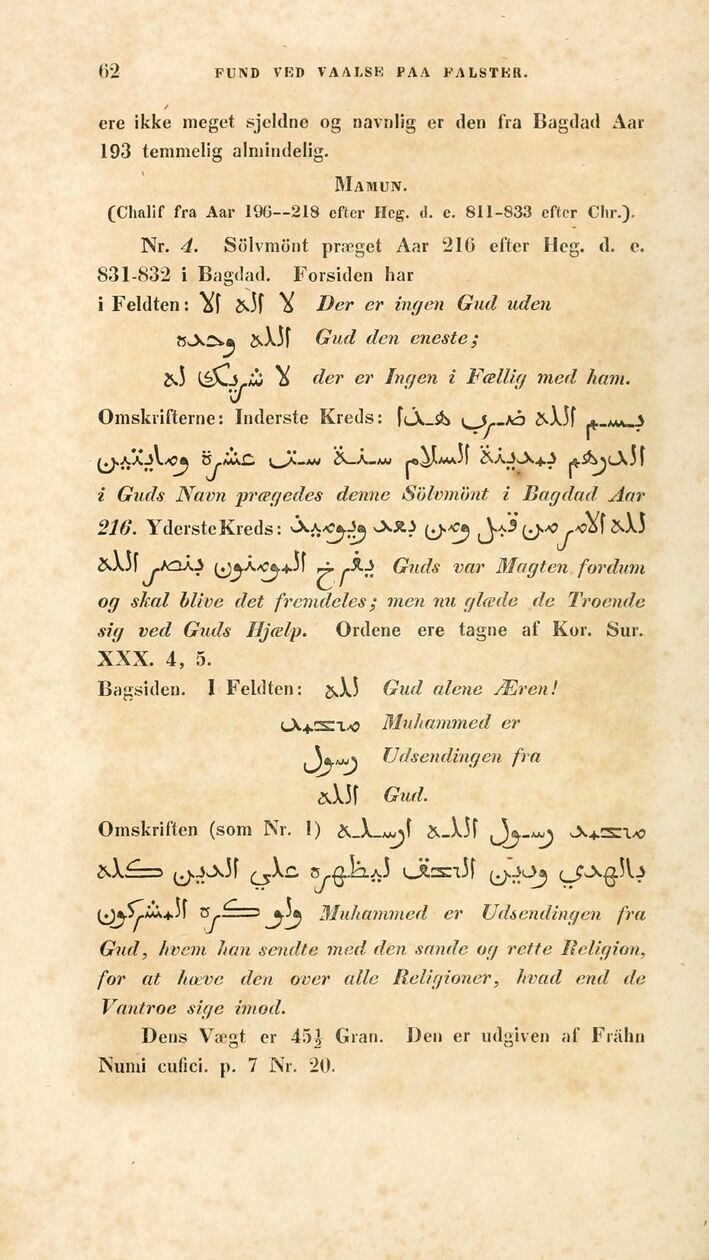 62 FUND VED VAALSE PAA FALSTER.
ere ikke meget sjeldne og navnlig er den fra Bagdad Aar
193 temmelig almindelig.
MAMUN.
(Chalif fra Aar 196--218 efter Heg. d. e. 811-833 efter Chr.).
Nr. 4. Sölvmönt præget Aar 216 efter Heg. d. e.
831-832 i Bagdad. Forsiden har
i Feldten: لا اله الا Der er ingen Gud uden
الله وحده Gud den eneste;
لا شريك له der er Ingen i Fællig med ham.
Omskrifterne: Inderste Kreds: بسم الله ضرب هذا
الدرهم بمدينة السلام سنة ست عشرة ومايتين
i Guds Navn prægedes denne Sölvmönt i Bagdad Aar
216. Yderste Kreds: لله الامر من قبل ومن بعد ويوميذ
يفرح المومنون بنصر الله Guds var Magten fordum
og skal blive det fremdeles; men nu glæde de Troende
sig ved Guds Hjælp. Ordene ere tagne af Kor. Sur.
XXX. 4, 5.
Bagsiden. I Feldten: لله Gud alene Æren!
محمد Muhammed er
رسول Udsendingen fra
الله Gud.
Omskriften (som Nr. 1) محمد رسول الله ارسله
بالهدى ودين الحق ليظهره على الدين كله
ولو كره المشركون Muhammed er Udsendingen fra
Gud, hvem han sendte med den sande og rette Religion,
for at hæve den over alle Religioner, hvad end de
Vantroe sige imod.
Dens Vægt er 45½ Gran. Den er udgiven af Frähn
Numi cufici. p. 7 Nr. 20.